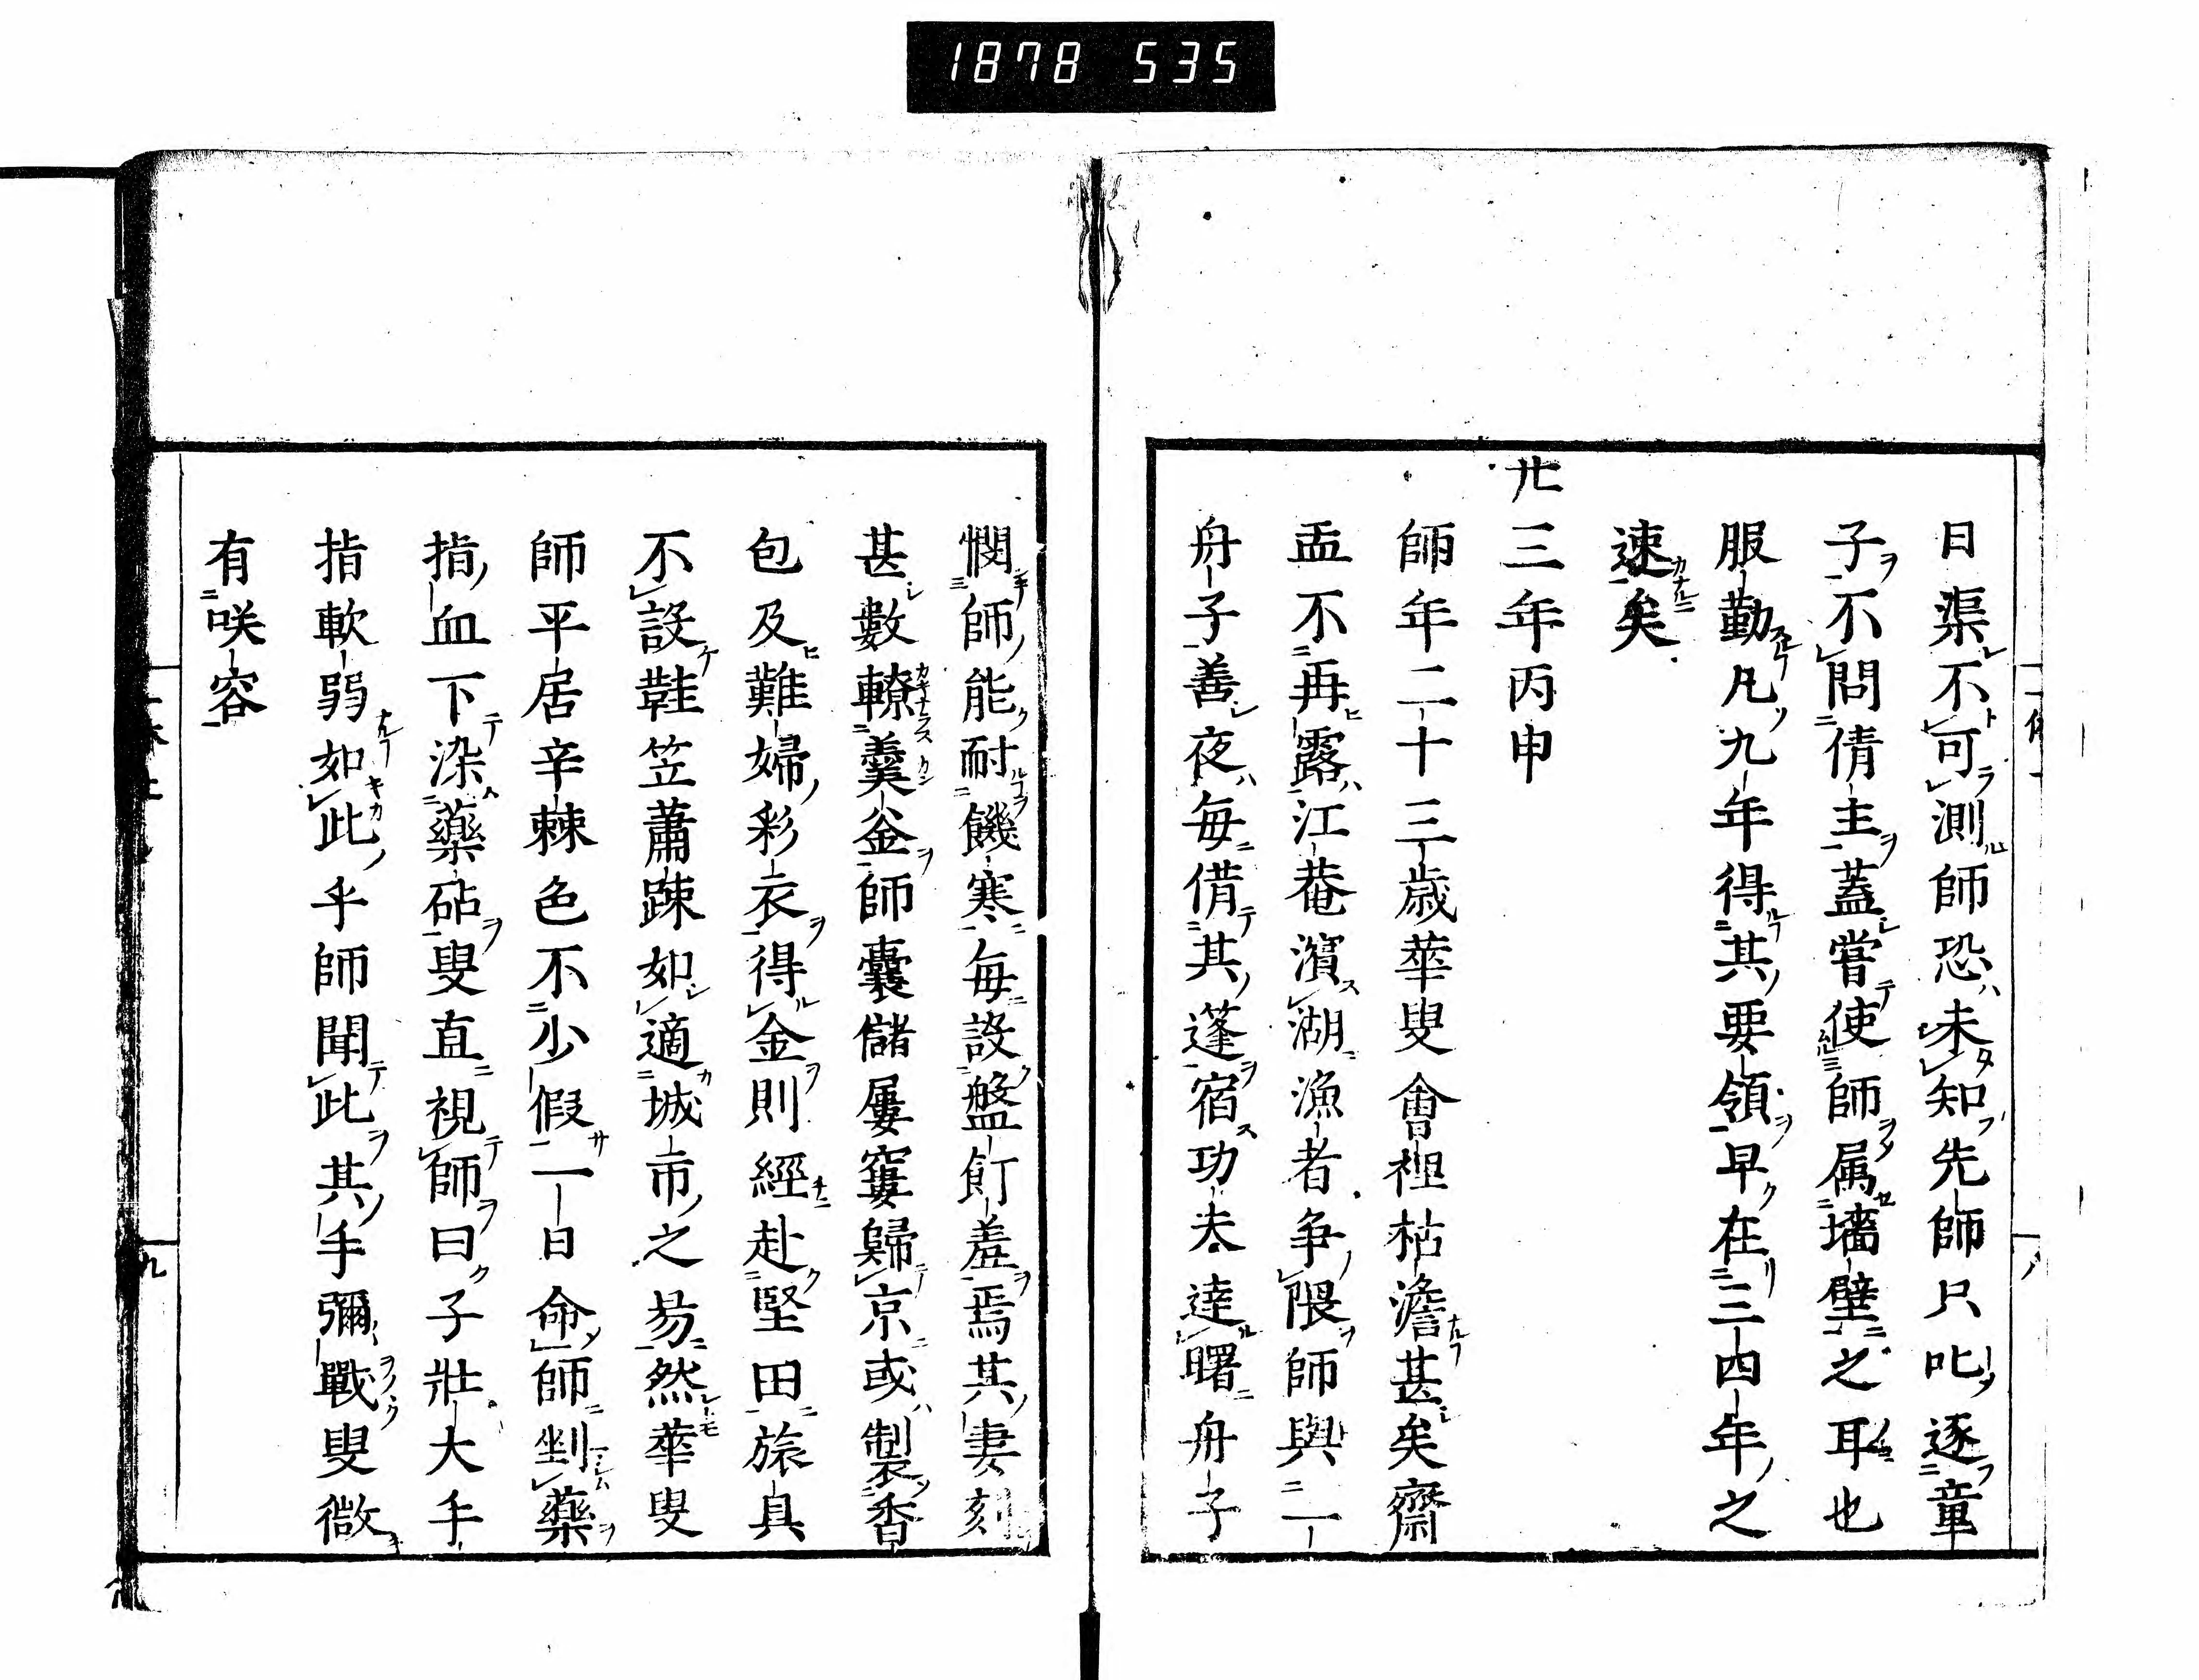 1878 535
日渠不可測師恐未知先師只叱逐童
子不問倩主蓋嘗使師属墻壁之耳也
服勤凡九年得其要領早在三四年之
速矣
廾三年丙申
師年二十三歳華叟會裡枯澹甚矣齋
盂不再露江菴濱湖漁者争隈師與一
舟子善夜毎借其蓬宿功夫達曙舟子
憫師能耐饑寒毎設盤飣羞焉其妻刻
甚數轑羹釡師嚢儲屡窶歸京或製香
包及難婦彩衣得金則經赴堅田旅具
不設鞋笠蕭踈如適城市之易然華叟
師平居辛棘色不少假一日命師剉藥
指血下染藥砧叟直視師曰子壯大手
指軟弱如此乎師聞此其手彌戰叟微
有咲容
九